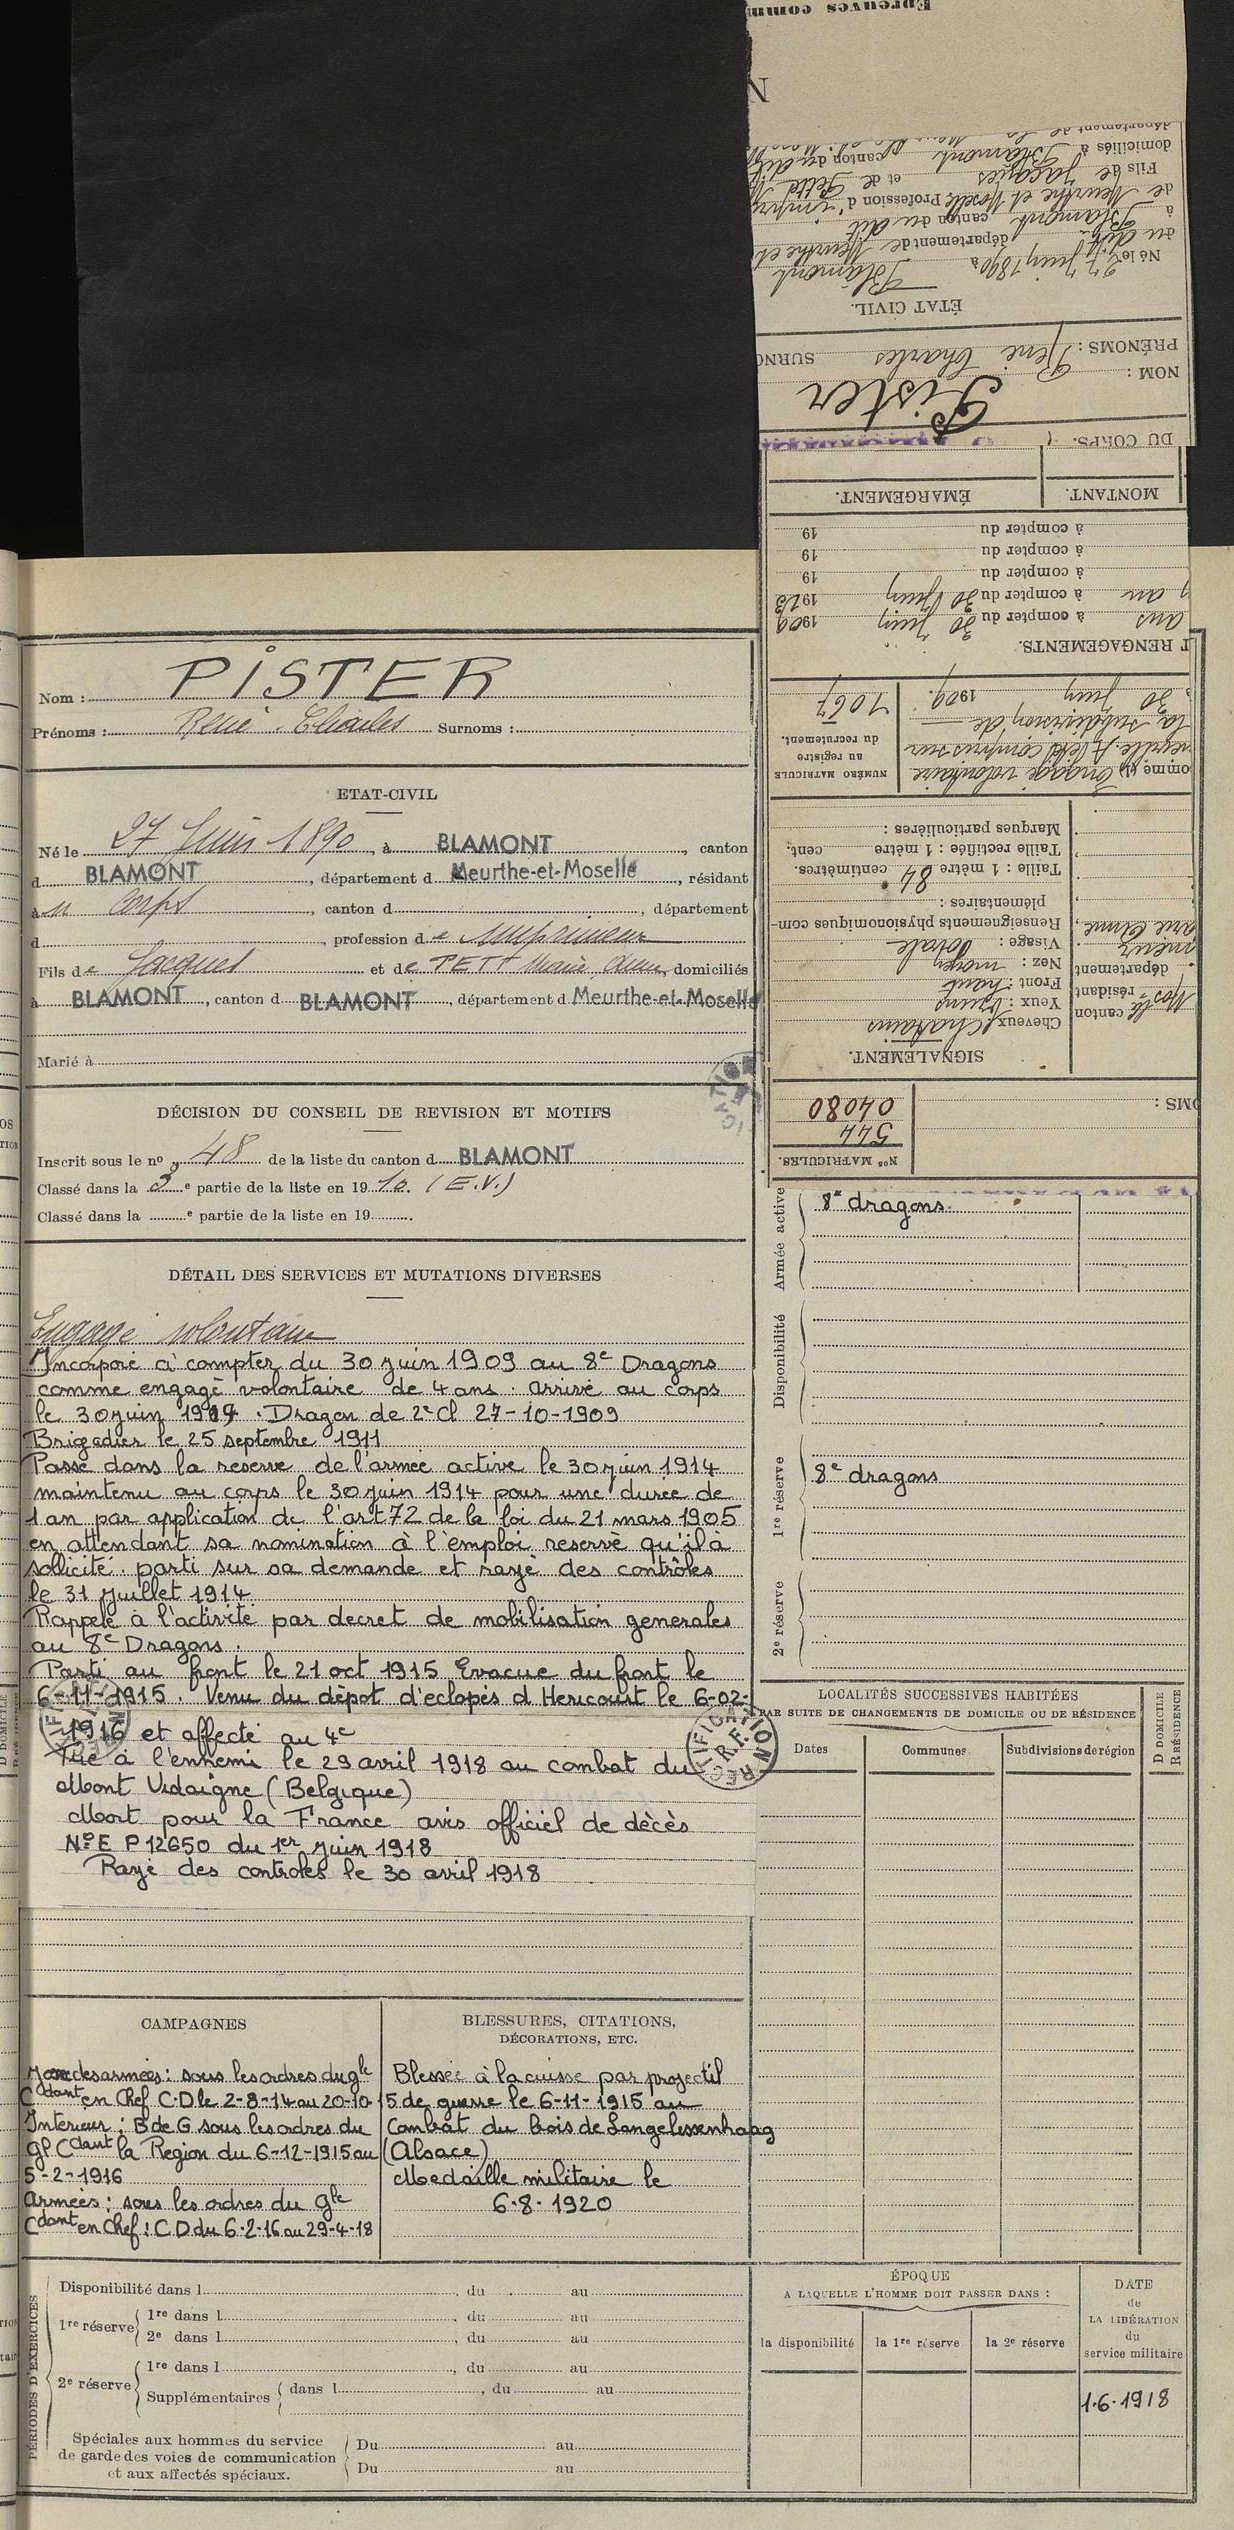 Epreuves comm
N
département de
domiciliés à Blamont canton du dit
Fils de Jacques et de Pett
de Meurthe et Moselle Profession d'impr
à Blamont canton du dit
du dit département de Meurthe et
Né le 27 juin 1890 à Blamont
ÉTAT CIVIL.
PRÉNOMS : René Charles SURNO
NOM : Pister
DU CORPS.
MONTANT. ÉMARGEMENT.
à compter du 19
à compter du 19
à compter du 19
1 an à compter du 30 juin 1913
ans à compter du 30 juin 1909
T RENGAGEMENTS.
30 juin 1909.
la subdivision de
neuville. A été compris sur
omme un Engagé volontaire
NUMÉRO MATRICULE
au registre
du recrutement.
1067
Marques particulières :
Taille rectifiée : 1 mètre cent.
Taille : 1 mètre 84 centimètres.
Renseignements physionomiques com-
plémentaires :
Visage : ovale
Nez : moyen
Front : haut
Yeux : bruns
Cheveux chatains
SIGNALEMENT.
arie Anne,
imeur
département
résidant
Mosle canton
OMS :
Nos MATRICULES.
544
04080
Nom : PISTER
Prénoms : René Charles Surnoms :
ETAT-CIVIL
Né le 27 Juin 1890, à BLAMONT, canton
d BLAMONT, département d Meurthe-et-Moselle, résidant
à u Corps, canton d, département
d, profession d e Imprimeur
Fils de Jacques et de PETT Marie Anne, domiciliés
à BLAMONT, canton d BLAMONT, département d Meurthe-et-Moselle
Marié à
DÉCISION DU CONSEIL DE REVISION ET MOTIFS
Inscrit sous le no 48 de la liste du canton d BLAMONT
Classé dans la 3e partie de la liste en 1910. (E.V.)
Classé dans la e partie de la liste en 19 .
DÉTAIL DES SERVICES ET MUTATIONS DIVERSES
Engagé volontaire
Incorporé à compter du 30 juin 1909 au 8e Dragons
comme engagé volontaire de 4 ans. arrivé au corps
le 30 juin 1909. Dragon de 2e Cl 27-10-1909
Brigadier le 25 septembre 1911
Passé dans la reserve de l'armée active le 30 juin 1914
maintenu au corps le 30 juin 1914 pour une durée de
1 an par application de l'art 72 de la loi du 21 mars 1905
en attendant sa nomination à l'emploi reservé qu'il à
sollicité. parti sur sa demande et rayé des contrôles
le 31 juillet 1914.
Rappelé à l'activité par decret de mobilisation generales
au 8e Dragons.
Parti au front le 21 oct 1915 Evacué du front le
6-11-1915. Venu du dépot d'eclopés d Hericourt le 6-02-
1916 et affecté au 4e
Tué à l'ennemi le 29 avril 1918 au combat du
Mont Vidaigne (Belgique)
Mort pour la France avis officiel de décès
No E P 12650 du 1er juin 1918
Rayé des controles le 30 avril 1918
RECTIFICATION
R.F.
CAMPAGNES
des armées : sous les ordres du gle
Cdant en Chef C.D le 2-8-14 au 20-10-15
Interieur : B de G sous les ordres du
Gl Cdant la Region du 6-12-1915 au
5-2-1916
Armées : sous les ordres du gle
Cdant en Chef : C D du 6-2-16 au 29-4-18
BLESSURES, CITATIONS,
DÉCORATIONS, ETC.
Blessée à la cuisse par projectil
de guerre le 6-11-1915 au
Combat du bois de Langelessenhaag
(Alsace)
Medaille militaire le
6.8.1920
Armée active
8e dragons.
Disponibilité
1re réserve
8e dragons
2e réserve
LOCALITÉS SUCCESSIVES HABITÉES
PAR SUITE DE CHANGEMENTS DE DOMICILE OU DE RÉSIDENCE
Dates Communes Subdivisions de région
D DOMICILE
R RÉSIDENCE
PÉRIODES D'EXERCICES
Disponibilité dans l , du au
1re réserve
1re dans l , du au
2e dans l , du au
2e réserve
1re dans l , du au
Supplémentaires dans l , du au
Spéciales aux hommes du service
de garde des voies de communication
et aux affectés spéciaux.
Du au
Du au
ÉPOQUE
A LAQUELLE L'HOMME DOIT PASSER DANS :
la disponibilité la 1re réserve la 2e réserve
DATE
de
LA LIBÉRATION
du
service militaire
1.6.1918